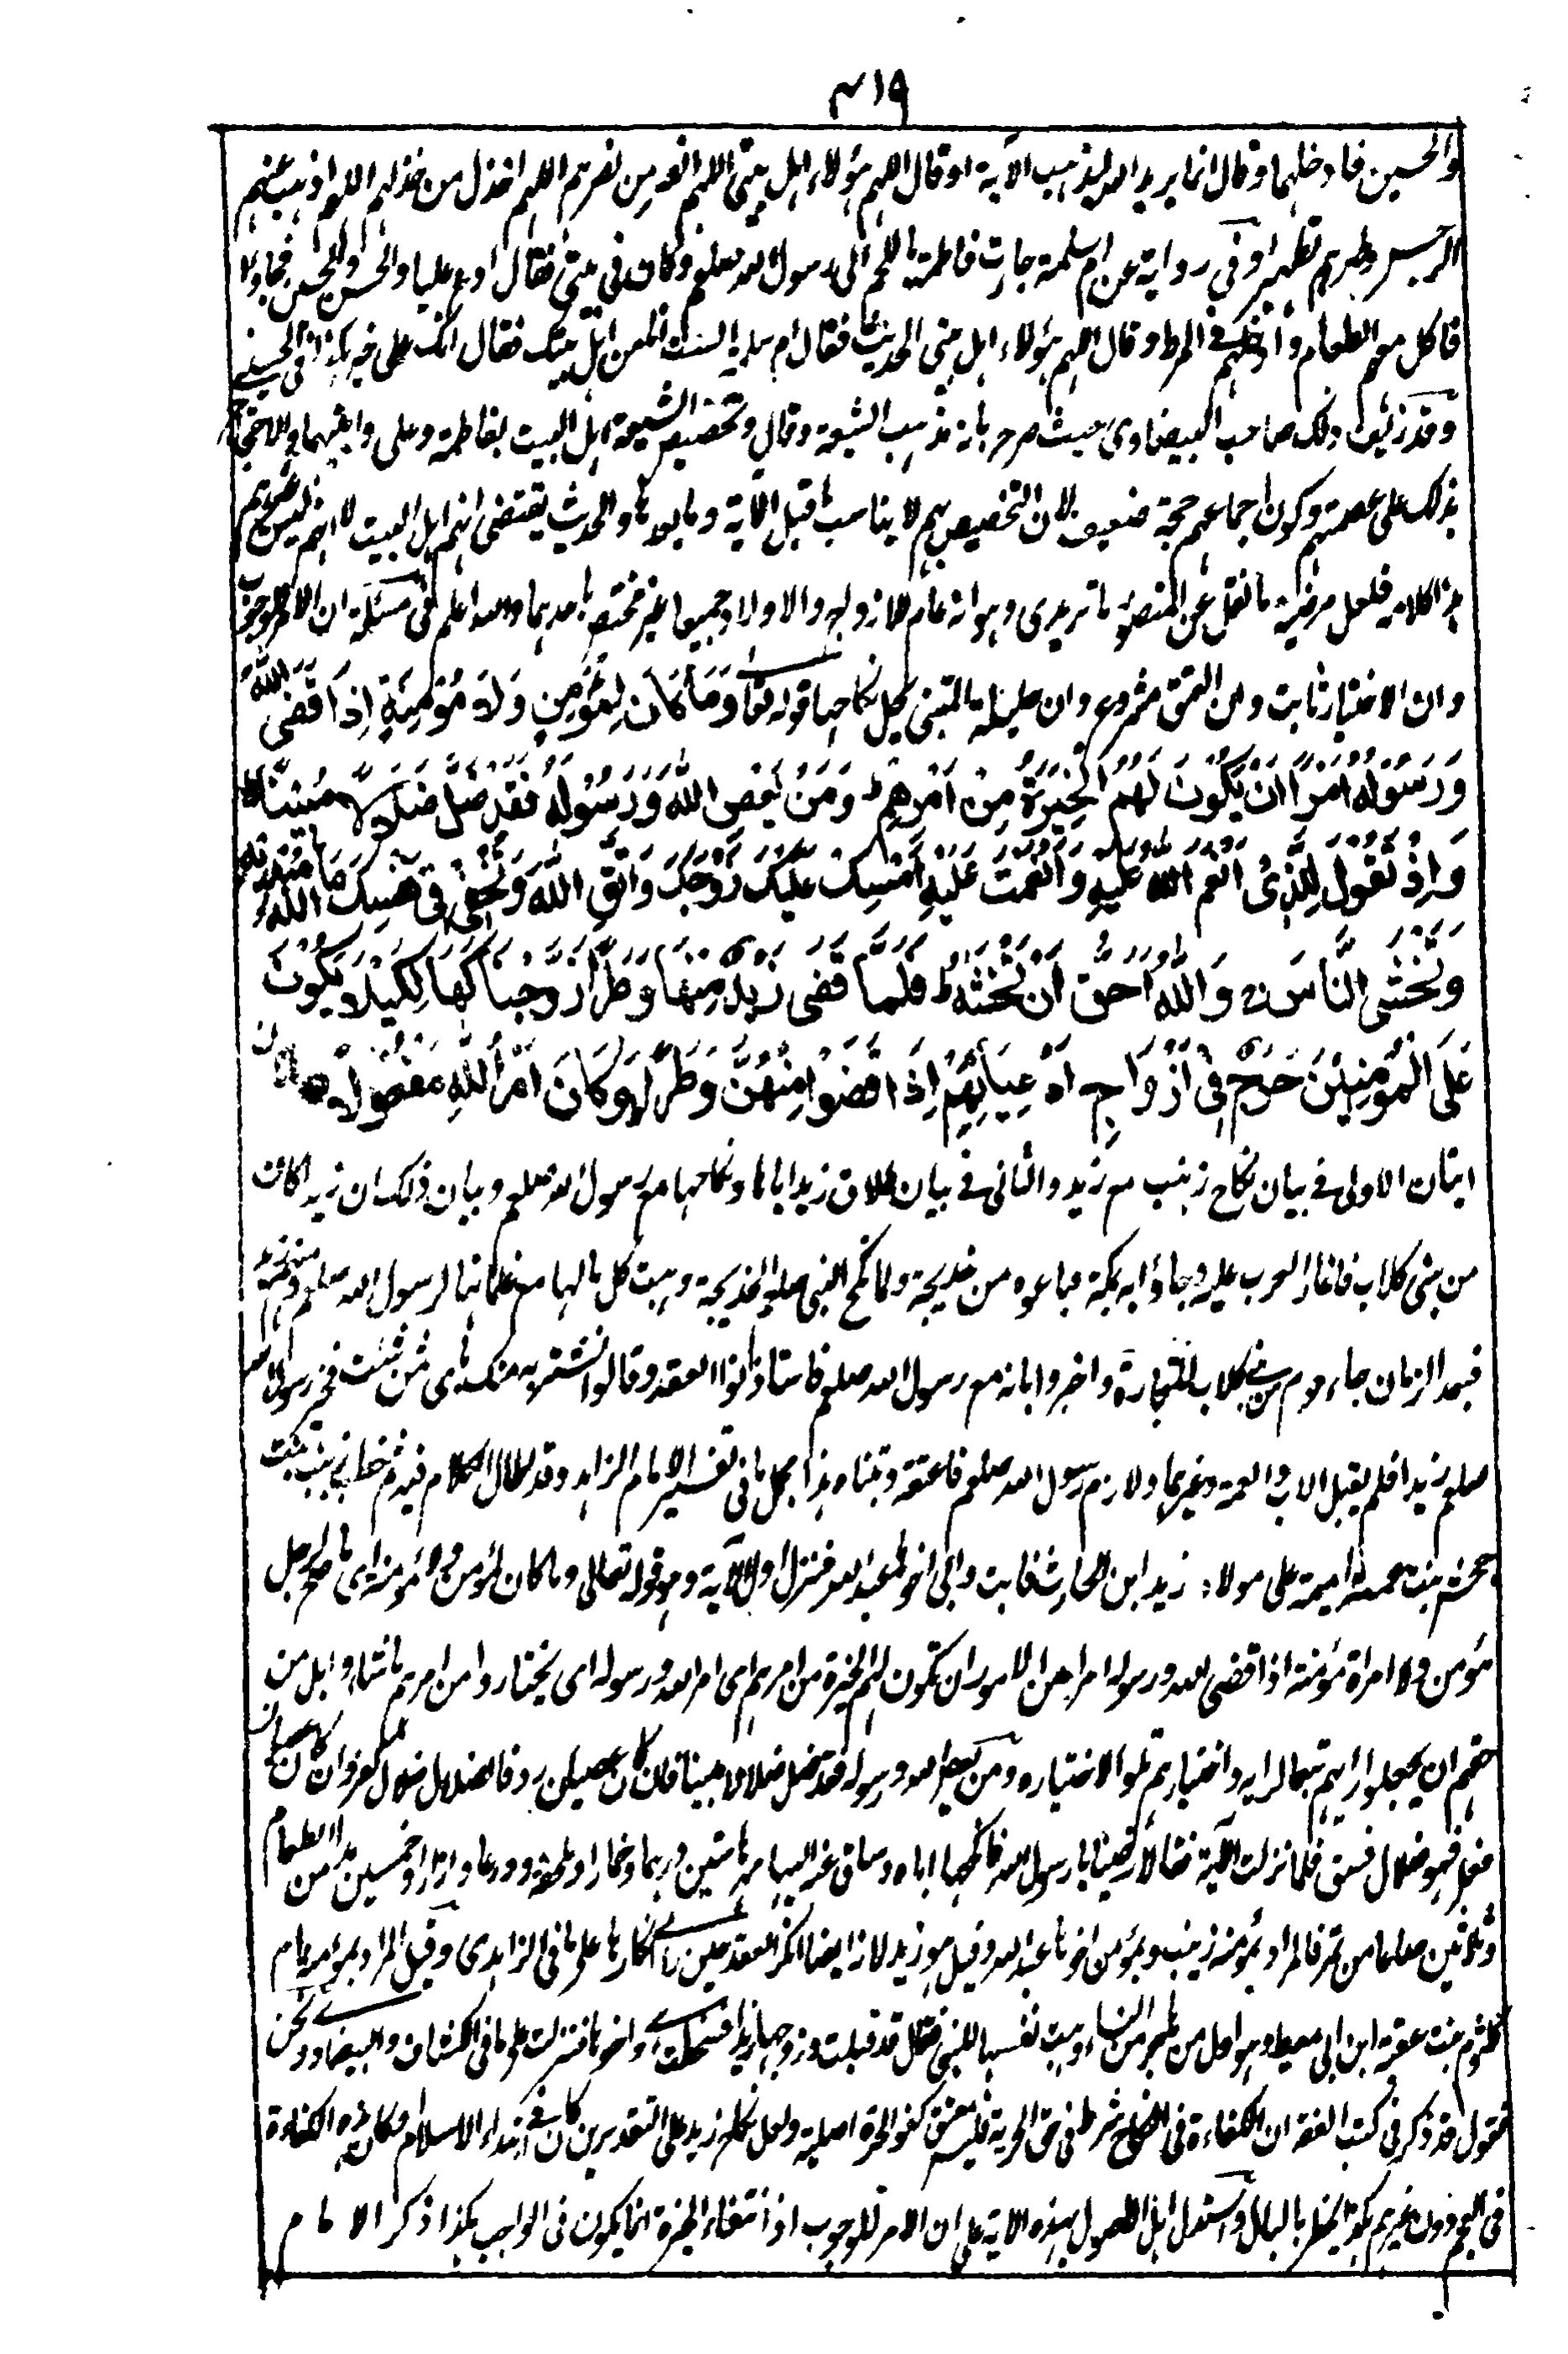 ٤١٩
والحسين فادخلهما وقال انما يريد الله ليذهب الآية او قال اللهم هؤلاء اهل بيتى اللهم انصر من نصرهم اللهم اخذل من خذلهم اللهم اذهب عنهم
الرجس وطهرهم تطهيرا وفي رواية عن ام سلمة جارت فاطمة الى رسول الله صلعم وكان في بيتى فقال ادع عليا والحسن والحسين فجاؤا
فاكل معهم الطعام وادخلهم في المرط وقال اللهم هؤلاء اهل بيتى الحديث فقال ام سلمة الست انا من اهل بيتك فقال انك على خير هكذا في الحسيني
وقد زيف ذلك صاحب البيضاوى حيث صرح بانه مذهب الشيعة وقال وتخصيص الشيعة اهل البيت بفاطمة وعلى وابنيهما والاحتجاج
بذلك على عصمتهم وكون اجماعهم حجة ضعيف لان التخصيص بهم لا يناسب ما قبل الآية وما بعدها والحديث يقتضى انهم اهل البيت لا انه ليس غيرهم
هذا كلامه فلعل مرضيه ما نقل عن المنصور ماتريدى وهو انه عام للازواج والاولاد جميعا غير مختص باحدهما والله اعلم في مسئلة ان الامر للوجوب
وان الاختيار ثابت وان العتق مشروع وان حليلة المتبنى يحل نكاحها قوله تعا وَمَا كَانَ لِمُؤْمِنٍ وَلَا مُؤْمِنَةٍ إِذَا قَضَى اللهُ
وَرَسُوْلُهٗ اَمْرًا اَنْ يَّكُوْنَ لَهُمُ الْخِيَرَةُ مِنْ اَمْرِهِمْ ط وَمَنْ يَّعْصِ اللهَ وَرَسُوْلَهٗ فَقَدْ ضَلَّ ضَلٰلًا مُّبِيْنًا ط
وَاِذْ تَقُوْلُ لِلَّذِىْ اَنْعَمَ اللهُ عَلَيْهِ وَاَنْعَمْتَ عَلَيْهِ اَمْسِكْ عَلَيْكَ زَوْجَكَ وَاتَّقِ اللهَ وَتُخْفِىْ فِىْ نَفْسِكَ مَا اللهُ مُبْدِيْهِ
وَتَخْشَى النَّاسَ ج وَاللهُ اَحَقُّ اَنْ تَخْشٰهُ ط فَلَمَّا قَضٰى زَيْدٌ مِّنْهَا وَطَرًا زَوَّجْنٰكَهَا لِكَيْلَا يَكُوْنَ
عَلَى الْمُؤْمِنِيْنَ حَرَجٌ فِىْ اَزْوَاجِ اَدْعِيَائِهِمْ اِذَا قَضَوْا مِنْهُنَّ وَطَرًا وَكَانَ اَمْرُ اللهِ مَفْعُوْلًا هاتان
ايتان الاولى في بيان نكاح زينب مع زيد والثانى في بيان طلاق زيد اياها ونكاحها مع رسول الله صلعم وبيان ذلك ان زيدا كان
من بنى كلاب فاغار العرب عليه وجاؤا به بمكة فباعوه من خديجة ولما نكح النبى صلعم الخديجة وهبت كل مالها مع غلمانها لرسول الله صلعم ومنهم زيد
فبعد الزمان جاء قوم من بنى كلاب للتجارة واخبروا بانه مع رسول الله صلعم فاستاذنوا العقد وقالوا نشتريه منك باى ثمن شئت فخير رسول الله
صلعم زيدا فلم يقبل الاب والعمة وغيرهما ولازم رسول الله صلعم فاعتقه وتبناه هذا مجمل ما فى تفسير الامام الزاهد وقد اطال الكلام فيه ثم خطب زينب بنت
جحش بنت عمته اميمة على مولاه زيد ابن الحارث فابت وابى اخوها عبد الله فنزل اول الآية وهو قوله تعالى وما كان لمؤمن ولا مؤمنة اى ما صح لرجل
مؤمن ولا امراة مؤمنة اذا قضى الله ورسوله امرا من الامور ان تكون لهم الخيرة من امرهم اى امر الله ورسوله اى يختاروا من امرهم ما شاؤا بل من
حقهم ان يجعلوا رايهم تبعا لرايه واختيارهم تلو الاختياره ومن يعص الله ورسوله فقد ضل ضلالا مبينا فان كان عصيان رد فالضلال ضلال كفر وان كان عصيان
فعل فهو ضلال فسق فلما نزلت الآية فقالا رضينا يا رسول الله فانكحها اياه وساق عنه اليها مهرها ستين درهما وخمارا وملحفة ودرعا وازارا وخمسين مدا من الطعام
وثلاثين صاعا من تمر فالمراد بمؤمنة زينب وبمؤمن اخوها عبد الله وقيل هو زيد لانه ايضا انكر العقد حين راى انكارها على ما فى الزاهدى وقيل المراد بمؤمنة ام
كلثوم بنت عقبة ابن ابى معيط وهى اول من هاجر من النساء وهبت نفسها للنبى فقال قد قبلت وزوجها زيدا فسخطت هى واخوها فنزلت على ما فى الكشاف والبيضاوى ونحن
نقول قد ذكر فى كتب الفقه ان الكفاءة فى النكاح شرط فى حق الحرية فليس معتق كفوا لحرة اصلية ولعل نكاح زيد على التقديرين كان فى ابتداء الاسلام وكان هذه الكفاءة
فى العجم دون غيرهم هكذا يخطر بالبال واستدل اهل الاصول بهذه الآية على ان الامر للوجوب اذ انتفاء الخيرة انما يكون فى الواجب هكذا ذكر الامام